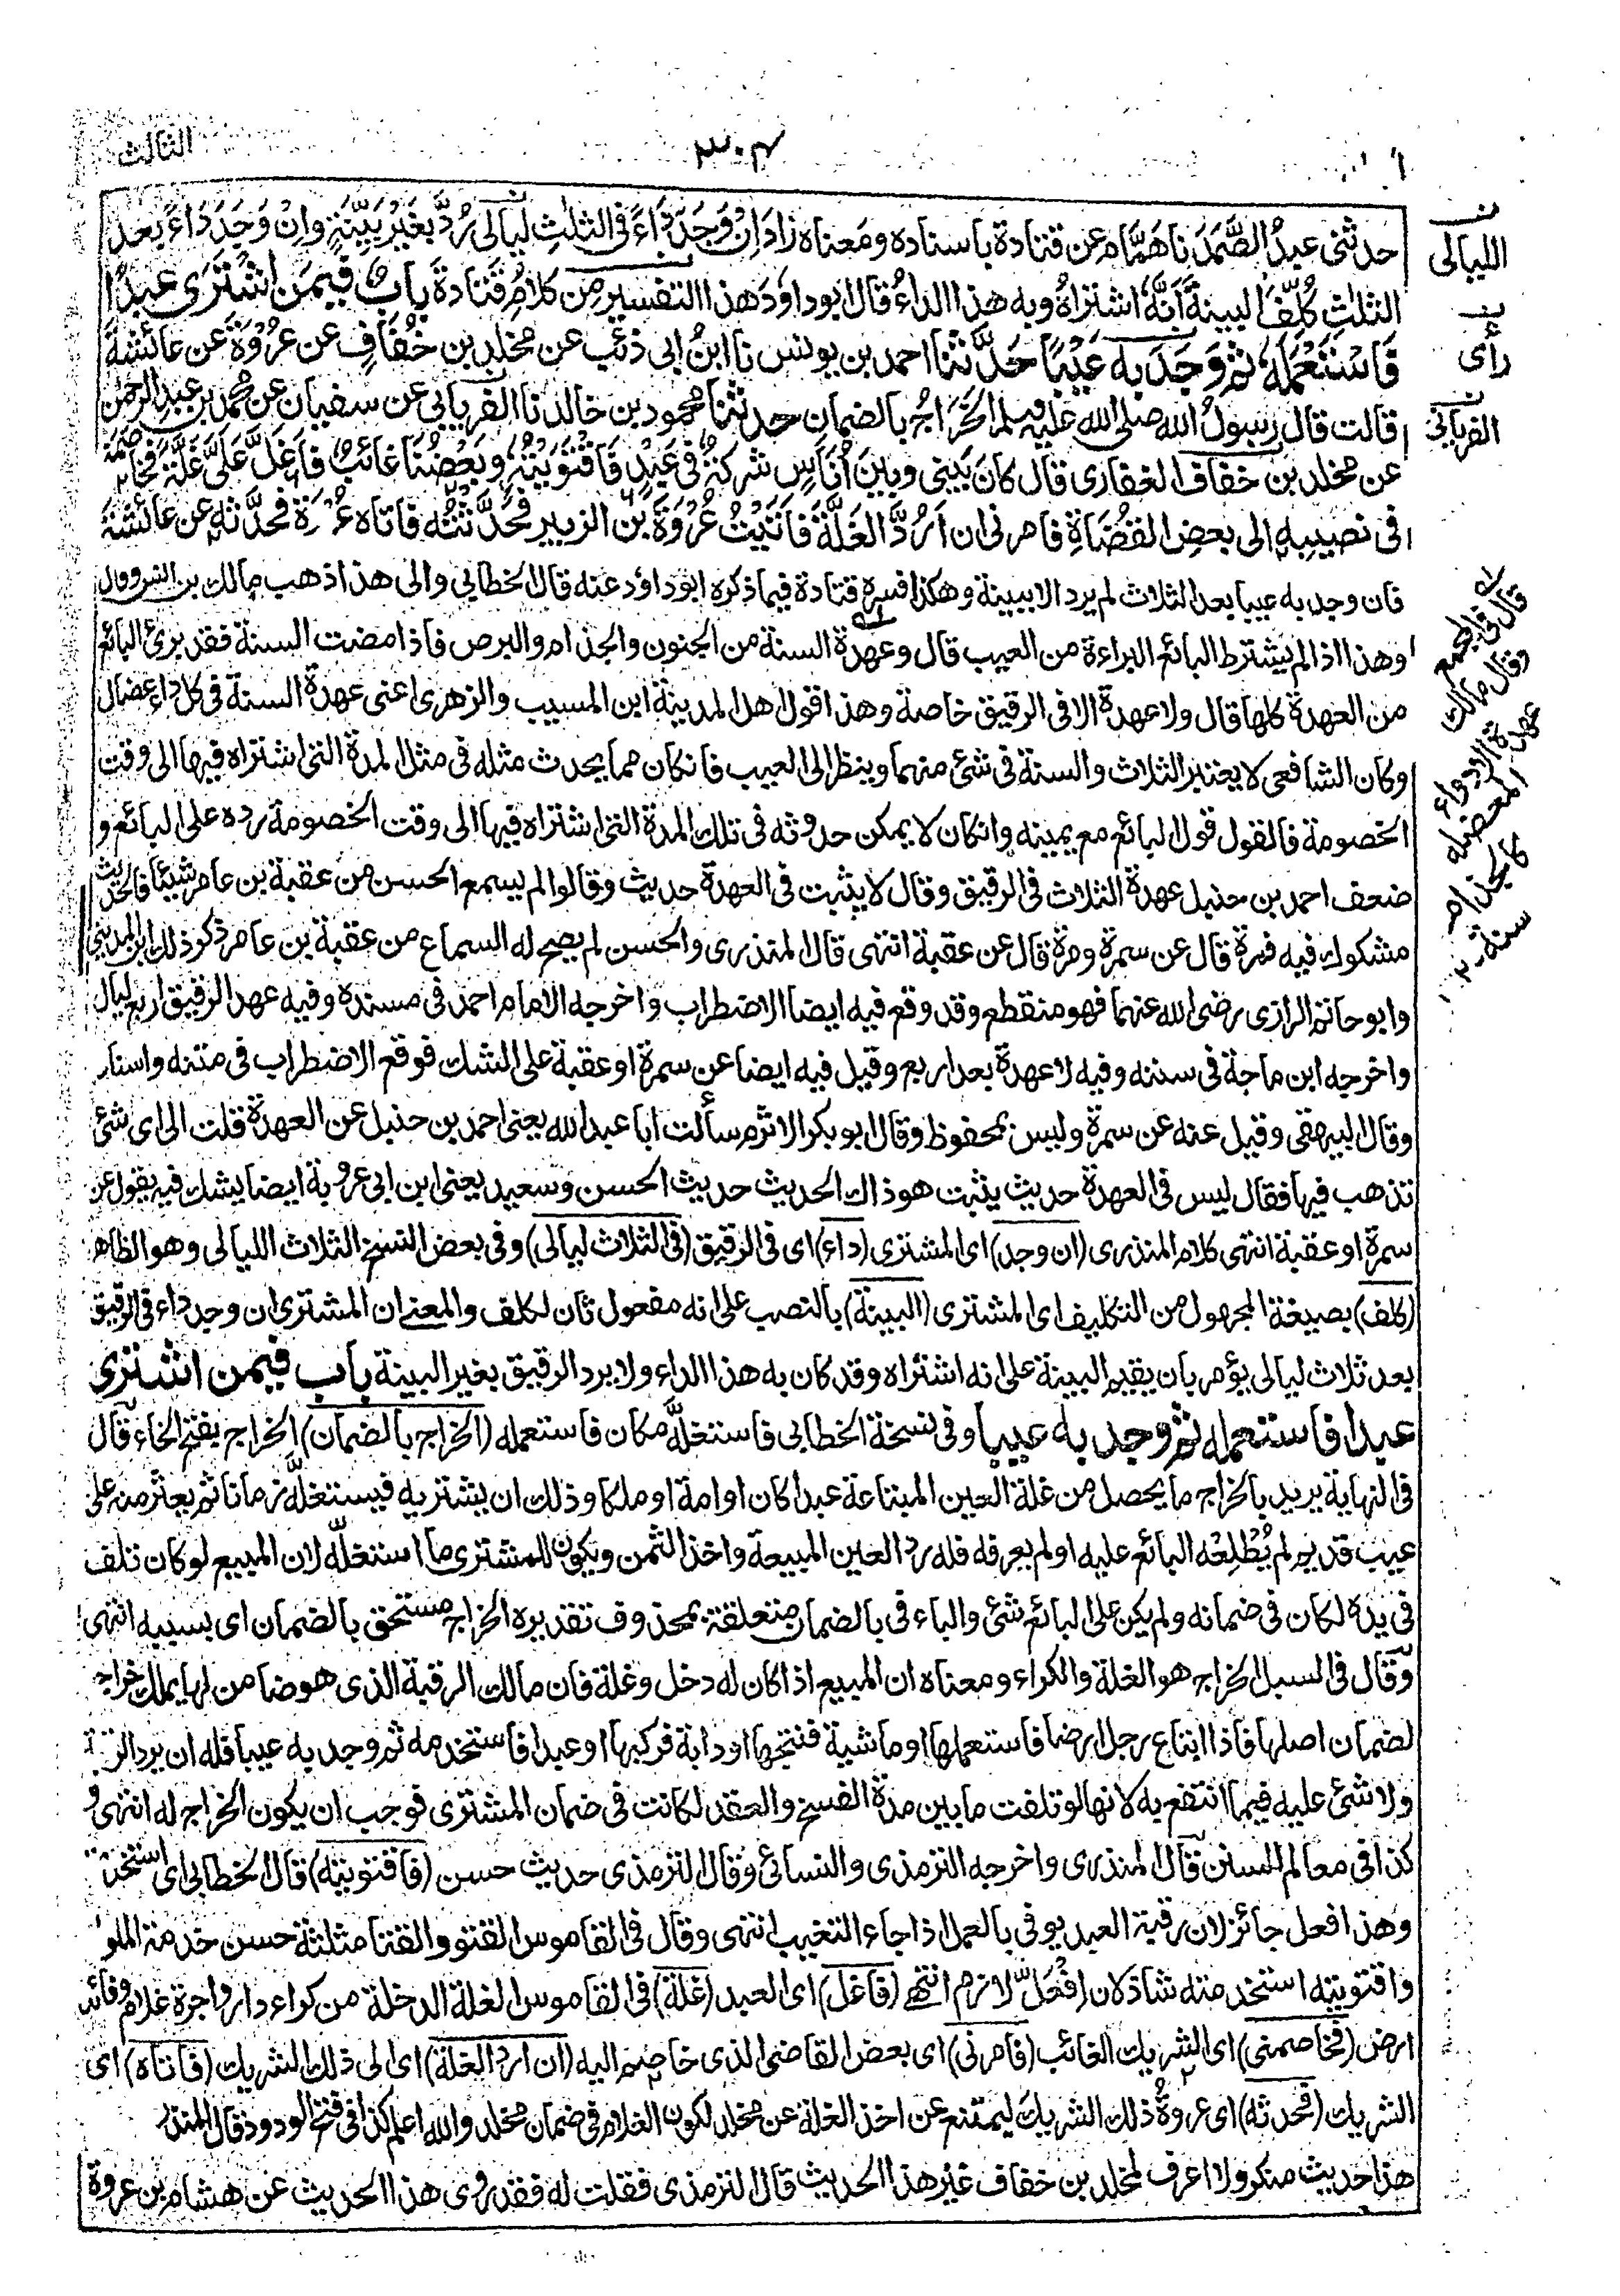 ٣٠٤
الثالث
حدثنى عبدُ الصَّمَدِ نا هَمَّام عن قتادة باسناده ومعناه زاد اِنْ وَجَدَ دَاءً فى الثلٰثِ ليالى رُدَّ بغَيْرِ بَيِّنَةٍ واِنْ وَجَدَ دَاءً بعد
الثلٰثِ كُلِّفَ البينةَ اَنَّهٗ اشتراهُ وبه هذا الداءُ قال ابوداؤدَ هذا التفسير مِن كلامِ قتادةَ بابٌ فيمَنِ اشْتَرٰى عبدًا
فَاسْتَعْمَلَهٗ ثم وَجَدَ به عَيْبًا حَدَّثَنا احمد بن يونس نا ابنُ ابى ذئب عن مخلد بن خُفَافٍ عن عُرْوَةَ عن عائشةَ
قالت قال رسولُ الله صلى الله عليه وسلم الخَرَاجُ بالضمان حدثنا محمود بن خالد نا الفريابي عن سفيان عن محمد بن عبد الرحمٰن
عن مخلد بن خفاف الغفارى قال كان بَينى وبينَ اُنَاسٍ شركةٌ فى عبدٍ فَاقْتَوَيْتُهٗ وبَعْضُنَا غائبٌ فاَغَلَّ عَلَىَّ غَلَّةً فخاصَمَنى
فى نصيبه الى بعضِ القُضَاةِ فامرنى ان اَرُدَّ الغَلَّةَ فَاَتَيْتُ عُرْوَةَ بْنَ الزبير فحَدَّثْتُه فاتاه عُرْوَة فحدَّثه عن عائشةَ
فان وجد به عيبا بعد الثلاث لم يرد الا ببينة وهكذا فسره قتادة فيما ذكره ابوداؤد عنه قال الخطابي والى هذا ذهب مالك بن انس وقال
وهذا اذا لم يشترط البائع البراءة من العيب قال وعهدة السنة من الجنون والجذام والبرص فاذا مضت السنة فقد برئ البائع
من العهدة كلها قال ولا عهدة الا فى الرقيق خاصة وهذا قول اهل المدينة ابن المسيب والزهرى اعنى عهدة السنة فى كل داء عضال
وكان الشافعى لا يعتبر الثلاث والسنة فى شئ منهما وينظر الى العيب فانكان مما يحدث مثله فى مثل المدة التى اشتراه فيها الى وقت
الخصومة فالقول قول البائع مع يمينه وانكان لا يمكن حدوثه فى تلك المدة التى اشتراه فيها الى وقت الخصومة رده على البائع و
ضعف احمد بن حنبل عهدة الثلاث فى الرقيق وقال لا يثبت فى العهدة حديث وقالوا لم يسمع الحسن من عقبة بن عامر شيئا فالحديث
مشكوك فيه فمرة قال عن سمرة ومرة قال عن عقبة انتهى قال المنذرى والحسن لم يصح له السماع من عقبة بن عامر ذكر ذلك ابن المدينى
وابو حاتم الرازى رضى الله عنهما فهو منقطع وقد وقع فيه ايضا الاضطراب واخرجه الامام احمد فى مسنده وفيه عهد الرقيق اربع ليال
واخرجه ابن ماجة فى سننه وفيه لا عهدة بعد اربع وقيل فيه ايضا عن سمرة او عقبة على الشك فوقع الاضطراب فى متنه واسناد
وقال البيهقى وقيل عنه عن سمرة وليس بمحفوظ وقال ابو بكر الاثرم سألت ابا عبد الله يعنى احمد بن حنبل عن العهدة قلت الى اى شئ
تذهب فيها فقال ليس فى العهدة حديث يثبت هو ذاك الحديث حديث الحسن وسعيد يعنى ابن ابى عروبة ايضا يشك فيه يقول عن
سمرة او عقبة انتهى كلام المنذرى (ان وجد) اى المشترى (داء) اى فى الرقيق (فى الثلاث ليالى) وفى بعض النسخ الثلاث الليالى وهو الظاهر
(كلف) بصيغة المجهول من التكليف اى المشترى (البينة) بالنصب على انه مفعول ثان لكلف والمعنى ان المشترى ان وجد داء فى الرقيق
بعد ثلاث ليالى يؤمر بان يقيم البينة على انه اشتراه وقد كان به هذا الداء ولا يرد الرقيق بغير البينة باب فيمن اشترى
عبدا فاستعمله ثم وجد به عيبا وفى نسخة الخطابى فاستغلَّه مكان فاستعمله (الخراج بالضمان) الخراج بفتح الخاء قال
فى النهاية يريد بالخراج ما يحصل من غلة العين المبتاعة عبدا كان او امة او ملكا وذلك ان يشتريه فيستغلَّه زمانا ثم يعثر منه على
عيب قديم لم يُطْلِعْه البائع عليه او لم يعرفه فله رد العين المبيعة واخذ الثمن ويكون للمشترى ما استغلَّه لان المبيع لو كان تلف
فى يده لكان فى ضمانه ولم يكن على البائع شئ والباء فى بالضمان متعلقة بمحذوف تقديره الخراج مستحق بالضمان اى بسببه انتهى
وقال فى السبل الخراج هو الغلة والكراء ومعناه ان المبيع اذا كان له دخل وغلة فان مالك الرقبة الذى هو ضامن لها يملك خراج
لضمان اصلها فاذا ابتاع رجل ارضا فاستعملها او ماشية فنتجها او دابة فركبها او عبدا فاستخدمه ثم وجد به عيبا فله ان يرد الر
ولا شئ عليه فيما انتفع به لانها لو تلفت ما بين مدة الفسخ والعقد لكانت فى ضمان المشترى فوجب ان يكون الخراج له انتهى و
كذا فى معالم السنن قال المنذرى واخرجه الترمذى والنسائى وقال الترمذى حديث حسن (فاقتويته) قال الخطابى اى استخدمته
وهذا افعل جائز لان رقبة العبد يوفى بالعمل اذا جاء التغيب انتهى وقال فى القاموس القتو والقتا مثلثة حسن خدمة الملو
واقتويته استخدمته شاذ لان افْعَلَّ لازم انتهى (فاغل) اى العبد (غلة) فى القاموس الغلة الدخلة من كراء دار واجرة غلام وفائد
ارض (فخاصمنى) اى الشريك الغائب (فامرنى) اى بعض القاضى الذى خاصم اليه (ان ارد الغلة) اى الى ذلك الشريك (فاتاه) اى
الشريك (فحدثه) اى عروةُ ذلك الشريكَ ليمتنع عن اخذ الغلة عن مخلد لكون الغلام فى ضمان مخلد والله اعلم كذا فى فتح الودود قال المنذر
هذا حديث منكر ولا اعرف لمخلد بن خفاف غير هذا الحديث قال الترمذى فقلت له فقد روى هذا الحديث عن هشام بن عروة
الليالى
رأى
الفريابى
قال فى المجمع
وقال مالك
عهدة الادواء
المعضلة
كالجذام
سنة